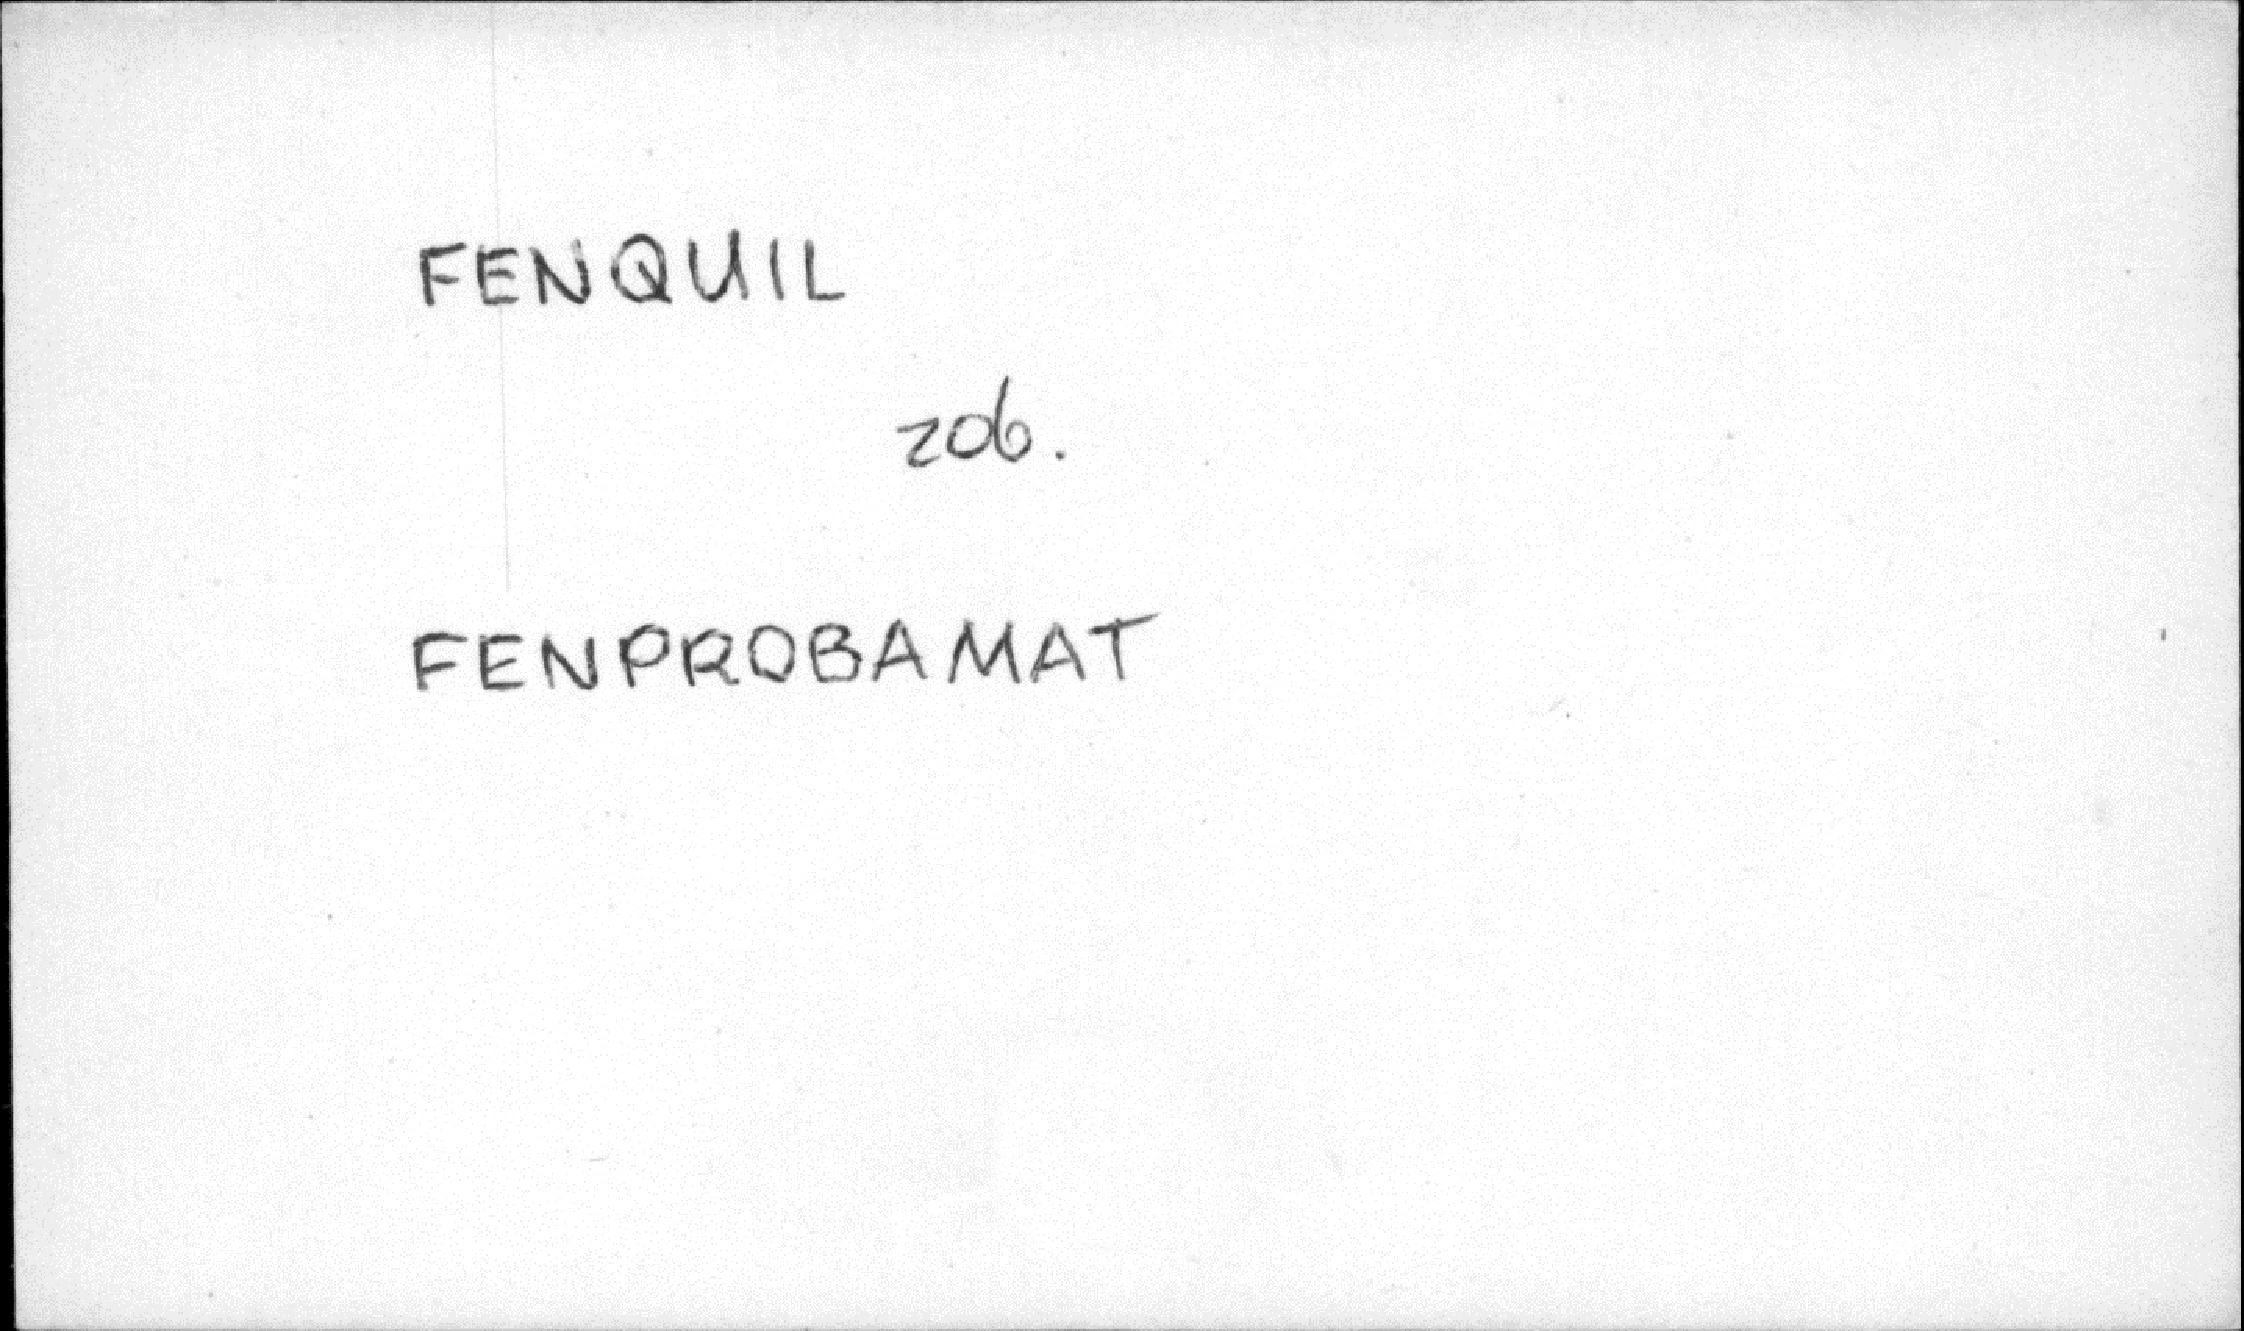 FENQUIL
zob.
FENPROBAMAT